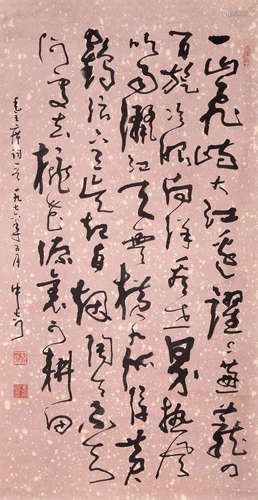 一山飛峙大江邊躍上葱蘢四
百旋冷眼向洋看世界热風
吹雨灑江天雲横九派浮黄
鶴浪下三吴起白烟陶令不知
何處去桃花源裏可耕田
毛主席詞一首一九七六年五月